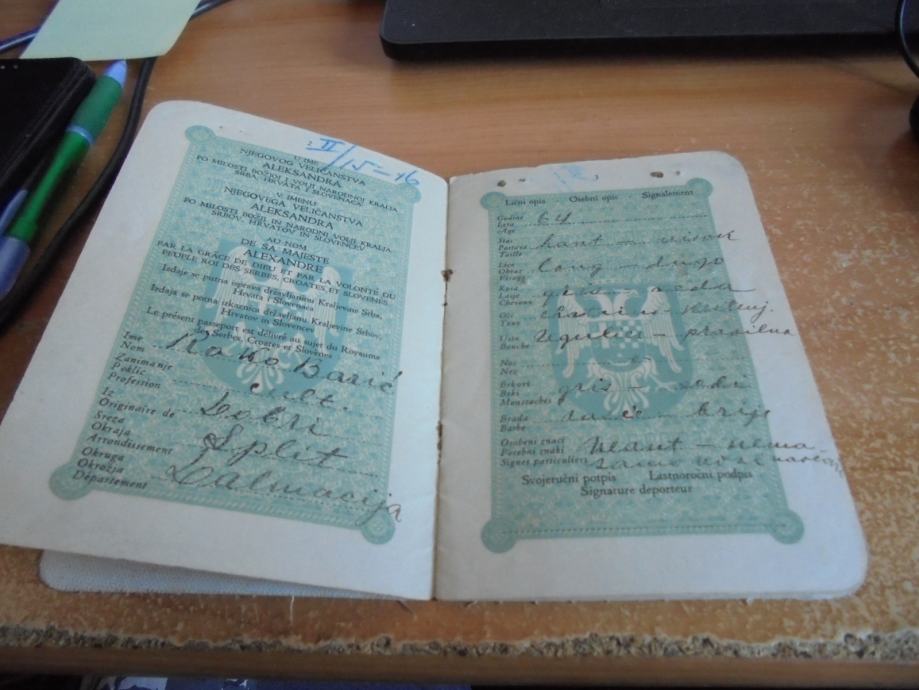 II/15-16
U IME
NJEGOVOG VELIČANSTVA
ALEKSANDRA
PO MILOSTI BOŽJOJ I VOLJI NARODNOJ KRALJA
SRBA, HRVATA I SLOVENACA
U IMENU
NJEGOVEGA VELIČANSTVA
ALEKSANDRA
PO MILOSTI BOŽJI IN NARODNI VOLJI KRALJA
SRBOV, HRVATOV IN SLOVENCEV
AU NOM
DE SA MAJESTE
ALEXANDRE
PAR LA GRÂCE DE DIEU ET PAR LA VOLONTÉ DU
PEUPLE ROI DES SERBES, CROATES ET SLOVÈNES
Izdaje se putna isprava državljaninu Kraljevine Srba,
Hrvata i Slovenaca
Izdaja se potna izkaznica državljanu Kraljevine Srbov,
Hrvatov in Slovencev
Le présent passeport est délivré au sujet du Royaume
des Serbes, Croates et Slovènes
Ime
Nom
Roko Barić
Zanimanje
Poklic
Profession
Iz
Originaire de
Sreza
Okraja
Arrondissement
Split
Okruga
Okrožja
Département
Dalmacija
Lični opis Osobni opis Signalement
Godine
Leta
Age
64
Stas
Postava
Taille
haut - visok
Lice
Obraz
Visage
long - dugo
Kosa
Lasje
Cheveux
Oči
Yeux
Usta
Bouche
regulier - pravilna
Nos
Nez
Brkovi
Brki
Moustaches
gris -
Brada
Barbe
brije
Osobeni znaci
Posebni znaki
Signes particuliers
neant - nema
Svojeručni potpis Lastnoročni podpis
Signature deporteur